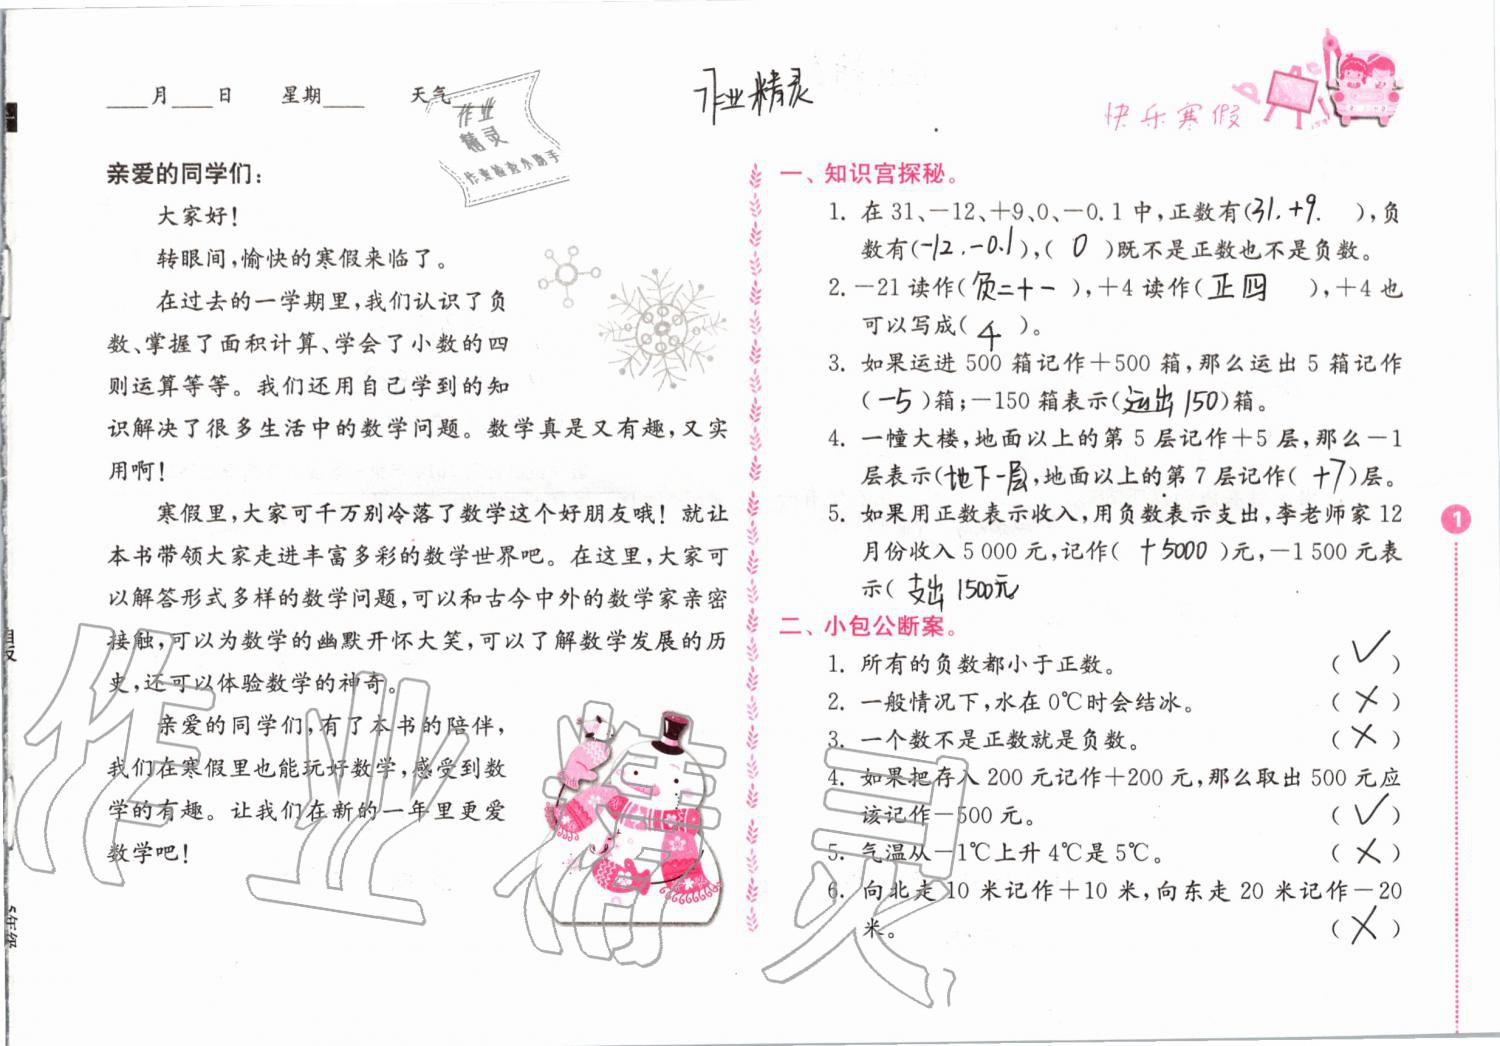 ____月____日 星期____ 天气
作业
精灵
作业检查小助手
作业精灵
快乐寒假
亲爱的同学们:
大家好!
转眼间,愉快的寒假来临了。
在过去的一学期里,我们认识了负
数、掌握了面积计算、学会了小数的四
则运算等等。我们还用自己学到的知
识解决了很多生活中的数学问题。数学真是又有趣,又实
用啊!
寒假里,大家可千万别冷落了数学这个好朋友哦!就让
本书带领大家走进丰富多彩的数学世界吧。在这里,大家可
以解答形式多样的数学问题,可以和古今中外的数学家亲密
接触,可以为数学的幽默开怀大笑,可以了解数学发展的历
史,还可以体验数学的神奇。
亲爱的同学们,有了本书的陪伴,
我们在寒假里也能玩好数学,感受到数
学的有趣。让我们在新的一年里更爱
数学吧!
一、知识宫探秘。
1. 在 31、-12、+9、0、-0.1 中,正数有(31. +9. ),负
数有(-12. -0.1),( 0 )既不是正数也不是负数。
2. -21 读作( 负二十一 ),+4 读作( 正四 ),+4 也
可以写成( 4 )。
3. 如果运进 500 箱记作+500 箱,那么运出 5 箱记作
( -5 )箱;-150 箱表示(运出 150)箱。
4. 一幢大楼,地面以上的第 5 层记作+5 层,那么-1
层表示(地下一层,地面以上的第 7 层记作( +7)层。
5. 如果用正数表示收入,用负数表示支出,李老师家 12
月份收入 5 000 元,记作( +5000 )元,-1 500 元表
示( 支出 1500元
二、小包公断案。
1. 所有的负数都小于正数。 ( ✓ )
2. 一般情况下,水在 0℃时会结冰。 ( × )
3. 一个数不是正数就是负数。 ( × )
4. 如果把存入 200 元记作+200 元,那么取出 500 元应
该记作-500 元。 ( ✓ )
5. 气温从-1℃上升 4℃是 5℃。 ( × )
6. 向北走 10 米记作+10 米,向东走 20 米记作-20
米。 ( × )
1
作业精灵
5年级